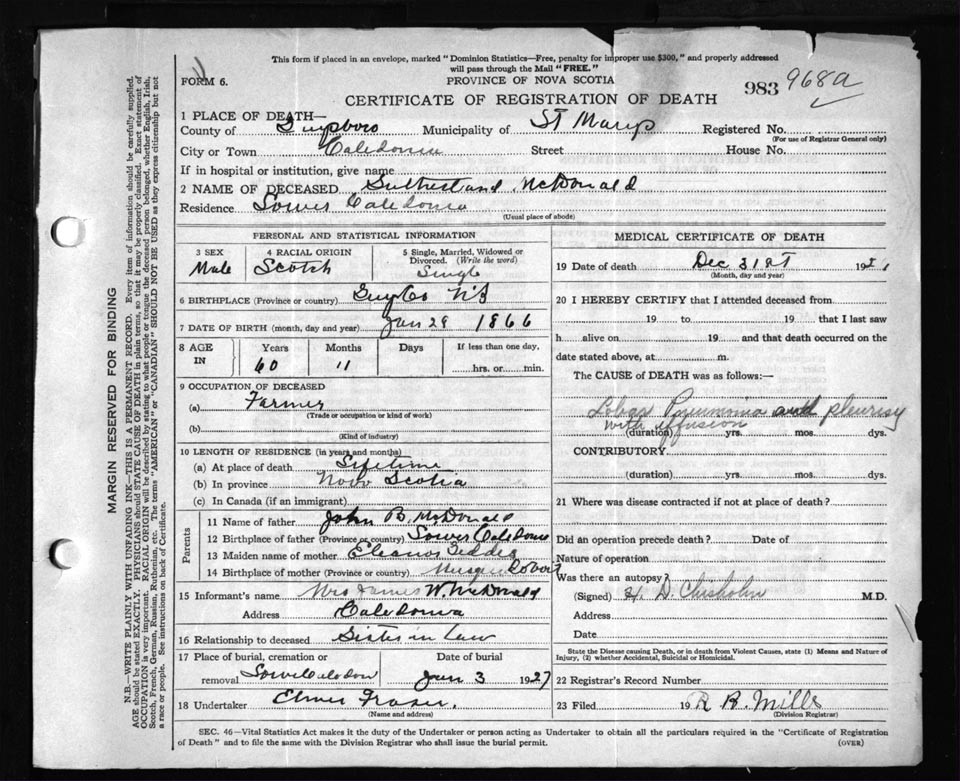 This form if placed in an envelope, marked "Dominion Statistics—Free, penalty for improper use $300," and properly addressed
will pass through the Mail "FREE."
FORM 6.
PROVINCE OF NOVA SCOTIA
983 968a
CERTIFICATE OF REGISTRATION OF DEATH
1 PLACE OF DEATH—
County of Guysboro Municipality of St Marys Registered No.
(For use of Registrar General only)
City or Town Caledonia Street House No.
If in hospital or institution, give name
2 NAME OF DECEASED Sutherland McDonald
Residence Lower Caledonia
(Usual place of abode)
PERSONAL AND STATISTICAL INFORMATION
3 SEX 4 RACIAL ORIGIN 5 Single, Married, Widowed or
Divorced. (Write the word)
Male Scotch Single
6 BIRTHPLACE (Province or country) Guy Co N.S
7 DATE OF BIRTH (month, day and year) Jan 29 1866
8 AGE IN Years Months Days If less than one day,
60 11 hrs. or min.
9 OCCUPATION OF DECEASED
(a) Farmer
(Trade or occupation or kind of work)
(b)
(Kind of industry)
10 LENGTH OF RESIDENCE (in years and months)
(a) At place of death Lifetime
(b) In province Nova Scotia
(c) In Canada (if an immigrant)
Parents
11 Name of father John B. McDonald
12 Birthplace of father (Province or country) Lower Caledonia
13 Maiden name of mother Eleanor
14 Birthplace of mother (Province or country)
15 Informant's name Mrs James W. McDonald
Address Caledonia
16 Relationship to deceased Sister in Law
17 Place of burial, cremation or Date of burial
removal Jan 3 1927
18 Undertaker Elmer Fraser.
(Name and address)
MEDICAL CERTIFICATE OF DEATH
19 Date of death Dec 31st 192
(Month, day and year)
20 I HEREBY CERTIFY that I attended deceased from
19 to 19 that I last saw
h alive on 19 and that death occurred on the
date stated above, at m.
The CAUSE of DEATH was as follows:—
Lobar Pneumonia and pleurisy
with effusion
(duration) yrs. mos. dys.
CONTRIBUTORY
(duration) yrs. mos. dys.
21 Where was disease contracted if not at place of death?
Did an operation precede death? Date of
Nature of operation
Was there an autopsy?
(Signed) H. D. Chisholm M.D.
Address
Date
State the Disease causing Death, or in death from Violent Causes, state (1) Means and Nature of
Injury, (2) whether Accidental, Suicidal or Homicidal.
22 Registrar's Record Number
23 Filed 19 R B. Mills
(Division Registrar)
SEC. 46—Vital Statistics Act makes it the duty of the Undertaker or person acting as Undertaker to obtain all the particulars required in the "Certificate of Registration
of Death" and to file the same with the Division Registrar who shall issue the burial permit.
(OVER)
MARGIN RESERVED FOR BINDING
N.B.—WRITE PLAINLY WITH UNFADING INK—THIS IS A PERMANENT RECORD. Every item of information should be carefully supplied.
AGE should be stated EXACTLY. PHYSICIANS should STATE CAUSE OF DEATH in plain terms, so that it may be properly classified. Exact statement of
OCCUPATION is very important. RACIAL ORIGIN will be described by stating to what people or tongue the deceased person belonged, whether English, Irish,
Scotch, French, German, Russian, Ruthenian, etc. The terms "AMERICAN" or "CANADIAN" SHOULD NOT BE USED as they express citizenship but not
a race or people. See instructions on back of Certificate.